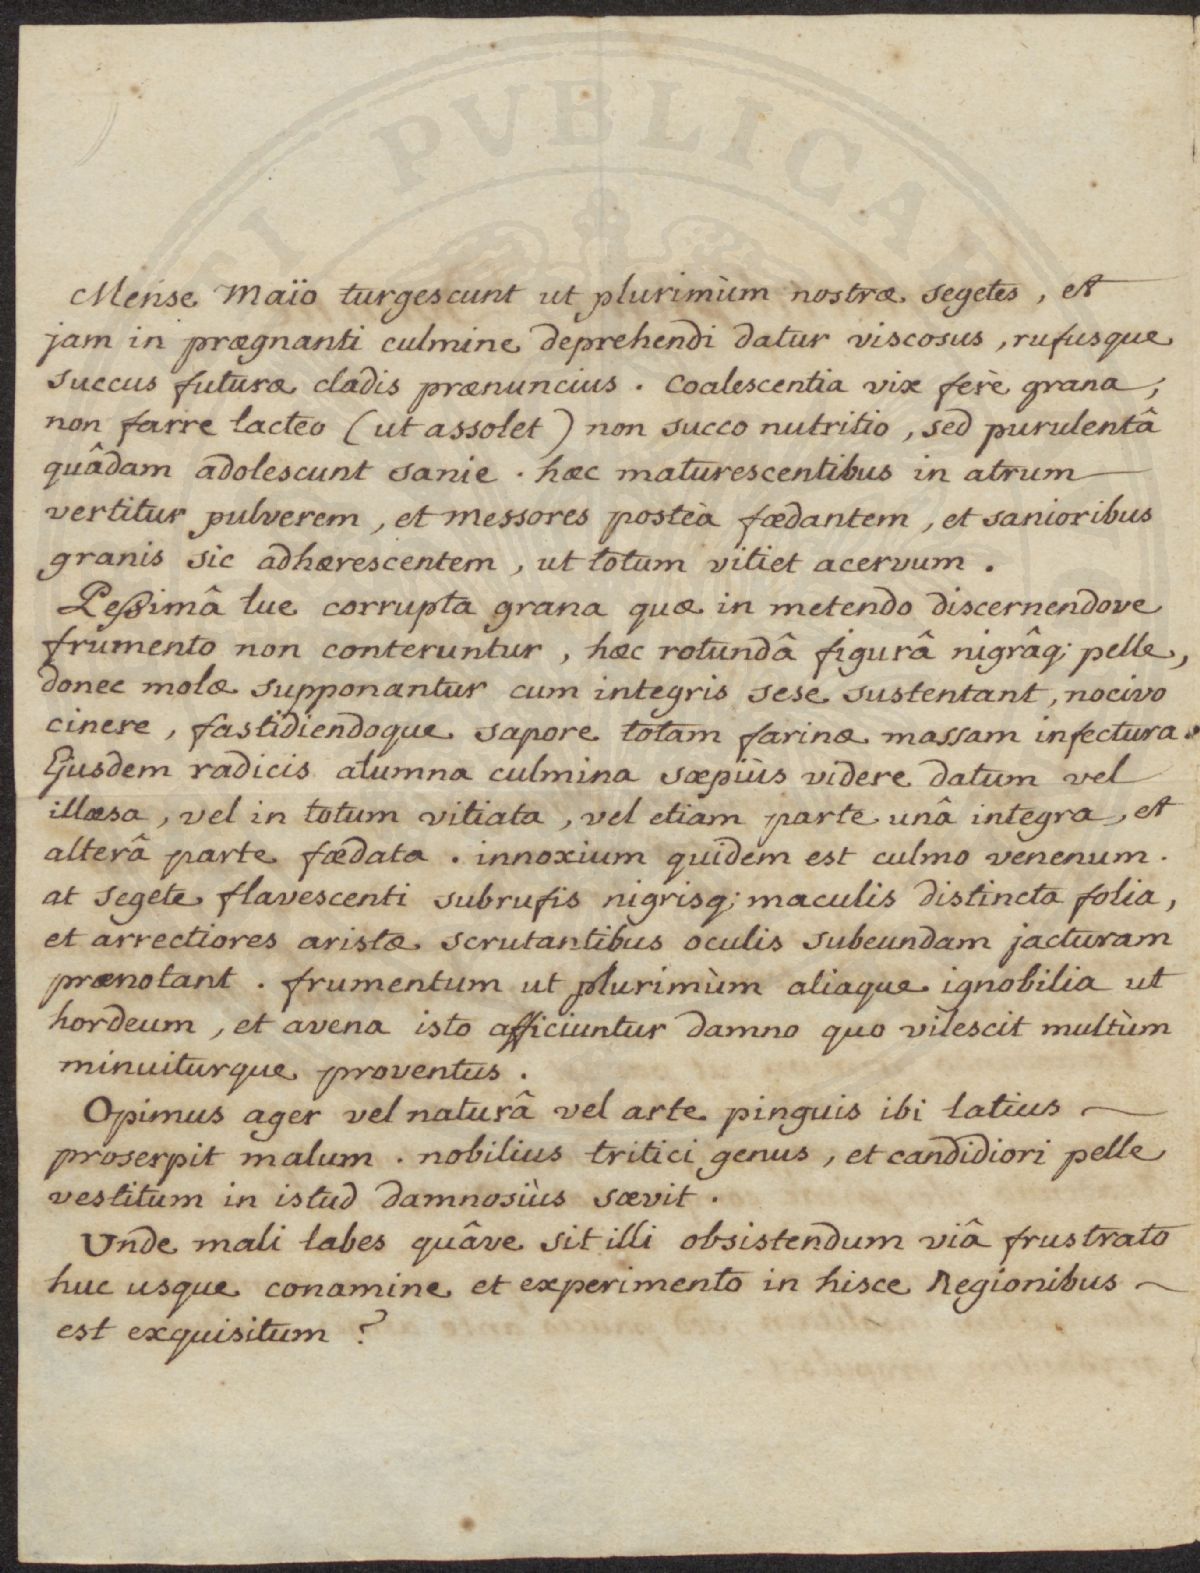 Mense Maïo turgescunt ut plurimùm nostræ segetes, et
jam in prægnanti culmine deprehendi datur viscosus, rufusque
succus futuræ cladis prænuncius. Coalescentia vix ferè grana,
non farre lacteo (ut assolet) non succo nutritio, sed purulentâ
quâdam adolescunt sanie. hæc maturescentibus in atrum
vertitur pulverem, et messores posteà fœdantem, et sanioribus
granis sic adhærescentem, ut totum vitiet acervum.
Pessimâ lue corrupta grana quæ in metendo discernendove
frumento non conteruntur, hæc rotundâ figurâ nigrâq; pelle,
donec molæ supponantur cum integris sese sustentant, nocivo
cinere, fastidiendoque sapore totam farinæ massam infectura.
Ejusdem radicis alumna culmina sæpiùs videre datum vel
illæsa, vel in totum vitiata, vel etiam parte unâ integra, et
alterâ parte fœdata. innoxium quidem est culmo venenum.
at segete flavescenti subrufis nigrisq; maculis distincta folia,
et arrectiores aristæ scrutantibus oculis subeundam jacturam
prænotant. frumentum ut plurimùm aliaque ignobilia ut
hordeum, et avena isto afficiuntur damno quo vilescit multùm
minuiturque proventus.
Opimus ager vel naturâ vel arte pinguis ibi latius
proserpit malum. nobilius tritici genus, et candidiori pelle
vestitum in istud damnosiùs sævit.
Unde mali labes quâve sit illi obsistendum viâ frustrato
huc usque conamine et experimento in hisce Regionibus
est exquisitum?
PUBLICAE